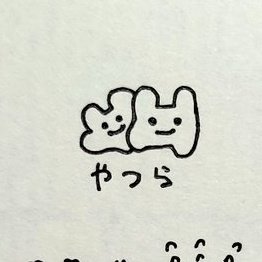 やつら